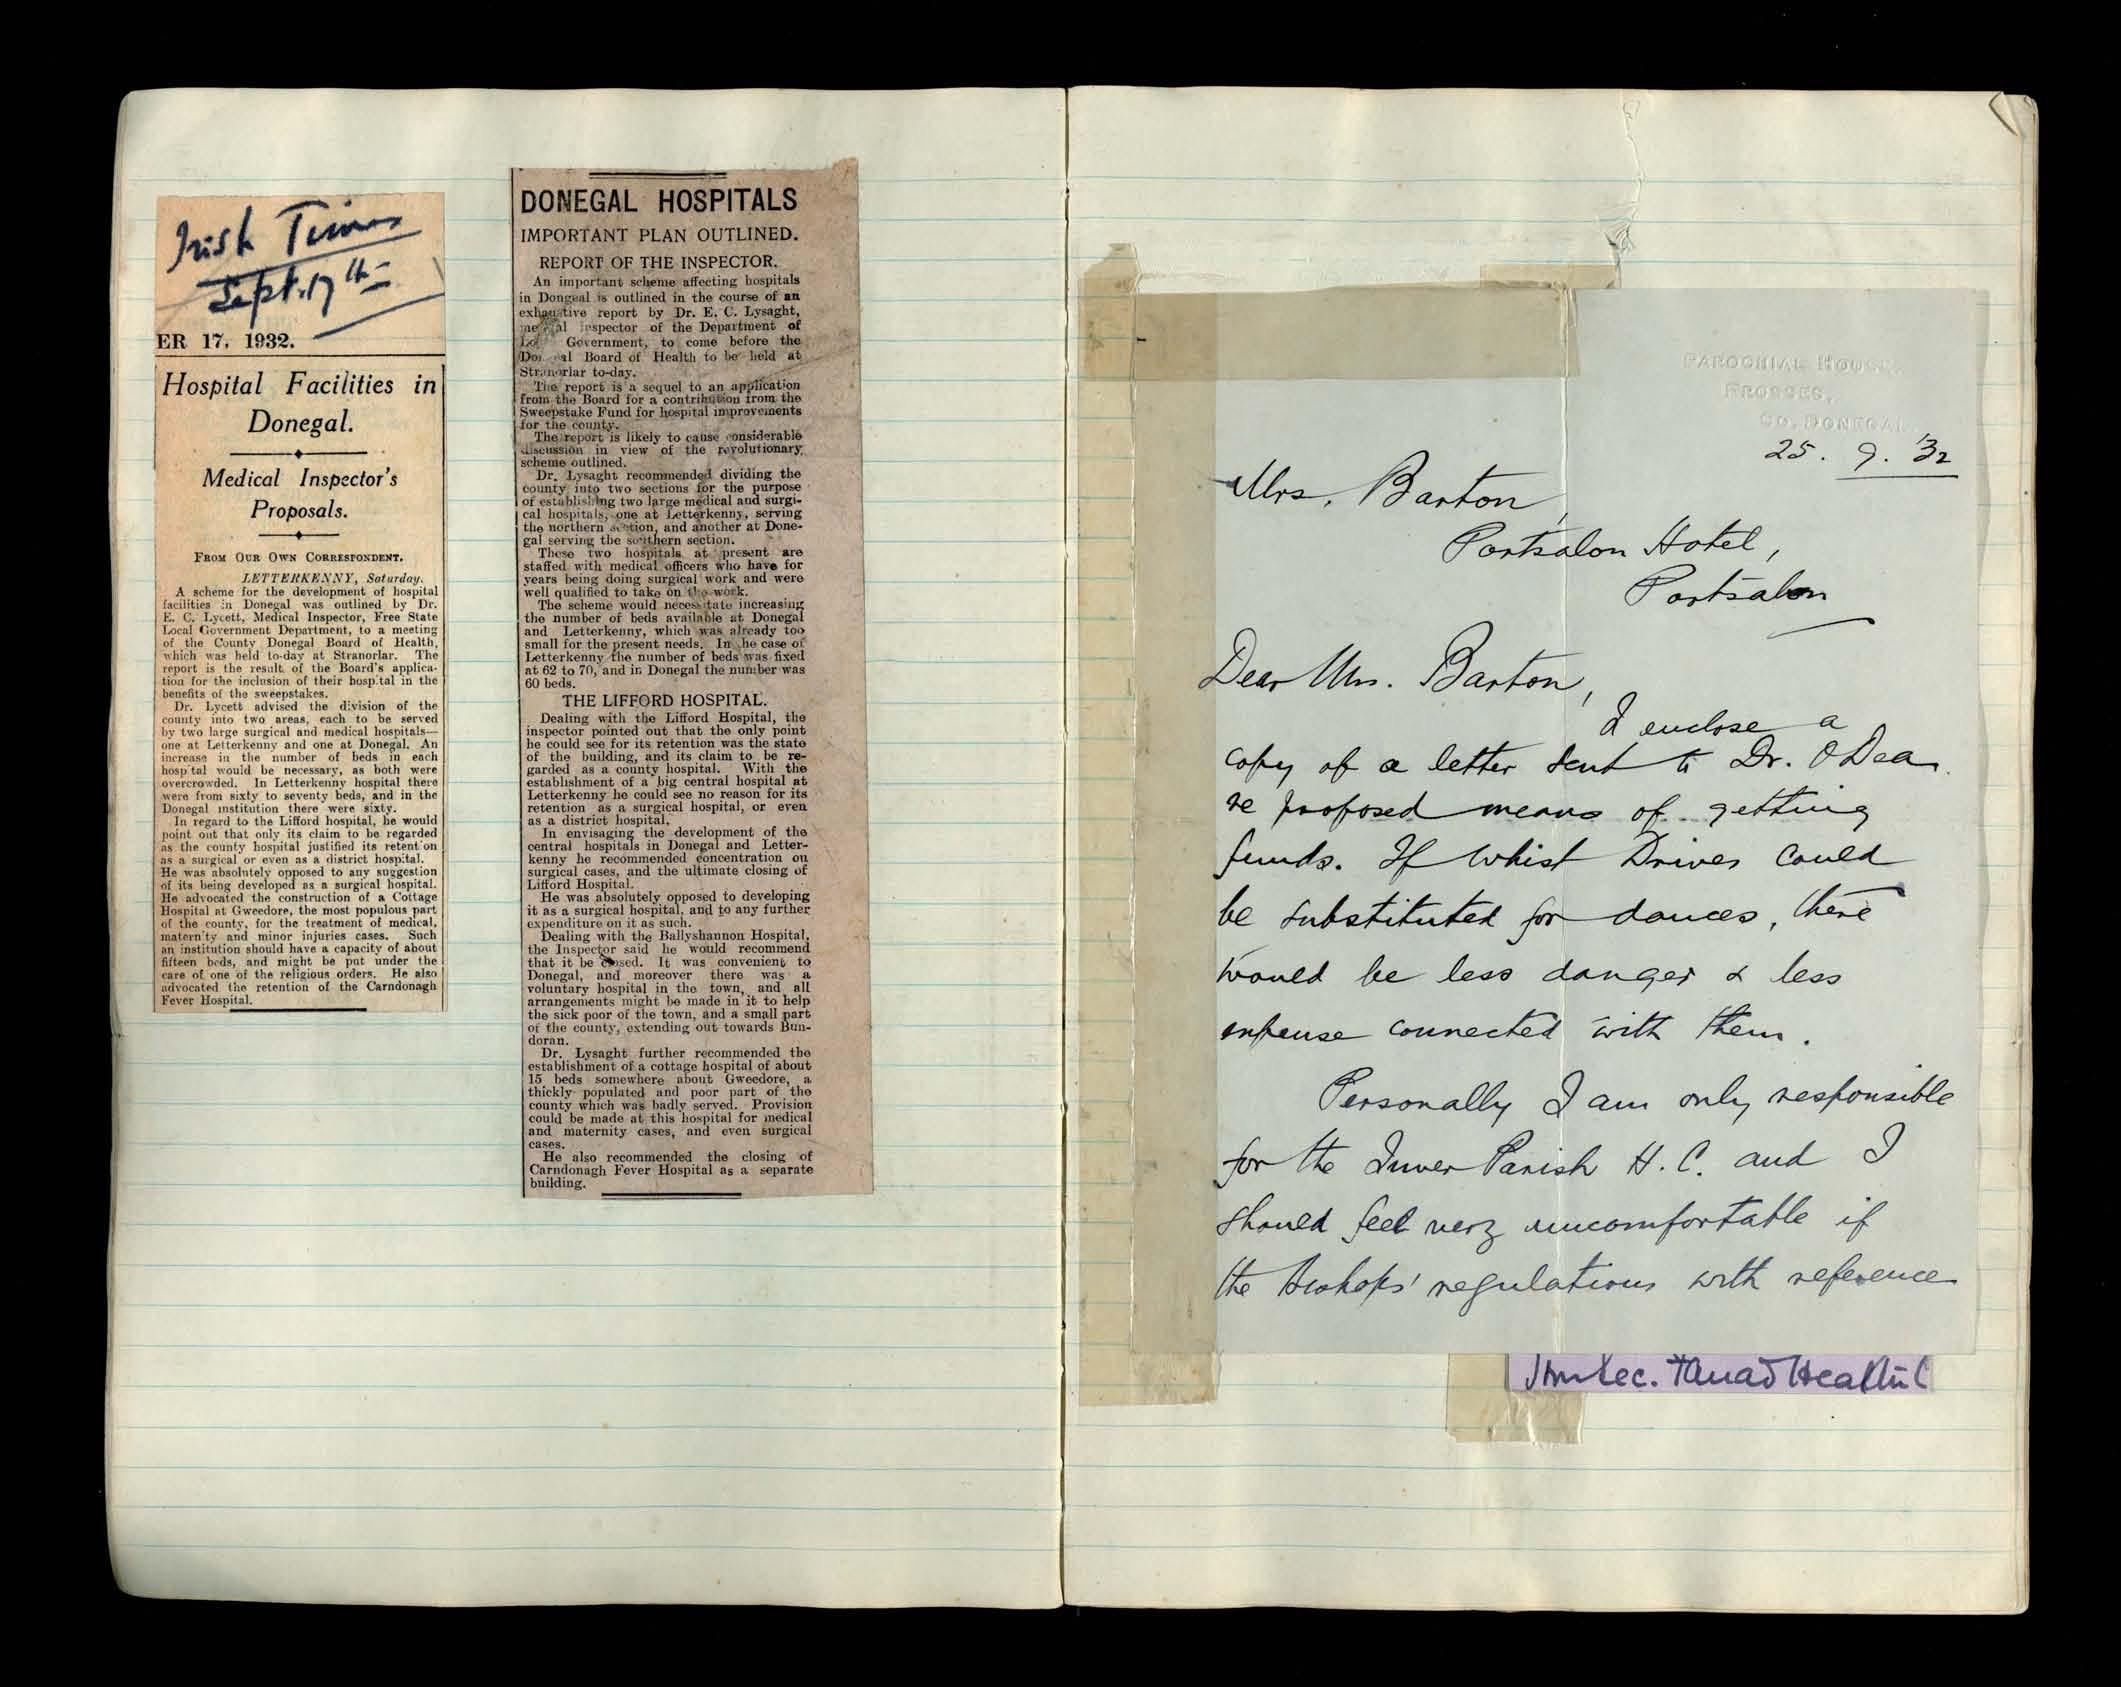 Irish Times
Sept. 17th
ER 17, 1932.
Hospital Facilities in
Donegal.
Medical Inspector's
Proposals.
FROM OUR OWN CORRESPONDENT.
LETTERKENNY, Saturday.
A scheme for the development of hospital
facilities in Donegal was outlined by Dr.
E. C. Lycett, Medical Inspector, Free State
Local Government Department, to a meeting
of the County Donegal Board of Health,
which was held to-day at Stranorlar. The
report is the result of the Board's applica-
tion for the inclusion of their hospital in the
benefits of the sweepstakes.
Dr. Lycett advised the division of the
county into two areas, each to be served
by two large surgical and medical hospitals—
one at Letterkenny and one at Donegal. An
increase in the number of beds in each
hospital would be necessary, as both were
overcrowded. In Letterkenny hospital there
were from sixty to seventy beds, and in the
Donegal institution there were sixty.
In regard to the Lifford hospital, he would
point out that only its claim to be regarded
as the county hospital justified its retention
as a surgical or even as a district hospital.
He was absolutely opposed to any suggestion
of its being developed as a surgical hospital.
He advocated the construction of a Cottage
Hospital at Gweedore, the most populous part
of the county, for the treatment of medical,
maternity and minor injuries cases. Such
an institution should have a capacity of about
fifteen beds, and might be put under the
care of one of the religious orders. He also
advocated the retention of the Carndonagh
Fever Hospital.
DONEGAL HOSPITALS
IMPORTANT PLAN OUTLINED.
REPORT OF THE INSPECTOR.
An important scheme affecting hospitals
in Dongeal is outlined in the course of an
exhaustive report by Dr. E. C. Lysaght,
medical inspector of the Department of
Local Government, to come before the
Donegal Board of Health to be held at
Stranorlar to-day.
The report is a sequel to an application
from the Board for a contribution from the
Sweepstake Fund for hospital improvements
for the county.
The report is likely to cause considerable
discussion in view of the revolutionary
scheme outlined.
Dr. Lysaght recommended dividing the
county into two sections for the purpose
of establishing two large medical and surgi-
cal hospitals, one at Letterkenny, serving
the northern section, and another at Done-
gal serving the southern section.
These two hospitals at present are
staffed with medical officers who have for
years being doing surgical work and were
well qualified to take on the work.
The scheme would necessitate increasing
the number of beds available at Donegal
and Letterkenny, which was already too
small for the present needs. In the case of
Letterkenny the number of beds was fixed
at 62 to 70, and in Donegal the number was
60 beds.
THE LIFFORD HOSPITAL.
Dealing with the Lifford Hospital, the
inspector pointed out that the only point
he could see for its retention was the state
of the building, and its claim to be re-
garded as a county hospital. With the
establishment of a big central hospital at
Letterkenny he could see no reason for its
retention as a surgical hospital, or even
as a district hospital.
In envisaging the development of the
central hospitals in Donegal and Letter-
kenny he recommended concentration on
surgical cases, and the ultimate closing of
Lifford Hospital.
He was absolutely opposed to developing
it as a surgical hospital, and to any further
expenditure on it as such.
Dealing with the Ballyshannon Hospital,
the Inspector said he would recommend
that it be closed. It was convenient to
Donegal, and moreover there was a
voluntary hospital in the town, and all
arrangements might be made in it to help
the sick poor of the town, and a small part
of the county, extending out towards Bun-
doran.
Dr. Lysaght further recommended the
establishment of a cottage hospital of about
15 beds somewhere about Gweedore, a
thickly populated and poor part of the
county which was badly served. Provision
could be made at this hospital for medical
and maternity cases, and even surgical
cases.
He also recommended the closing of
Carndonagh Fever Hospital as a separate
building.
PAROCHIAL HOUSE,
FROSSES,
CO. DONEGAL.
25. 9. '32
Mrs. Barton,
Portsalon Hotel,
Portsalon
Dear Mrs. Barton,
I enclose a
copy of a letter sent to Dr. O'Dea
re proposed means of getting
funds. If Whist Drives could
be substituted for dances, there
would be less danger & less
expense connected with them.
Personally I am only responsible
for the Inver Parish H. C. and I
should feel very uncomfortable if
the Bishops' regulations with reference
Hon Sec. Fanad Health C